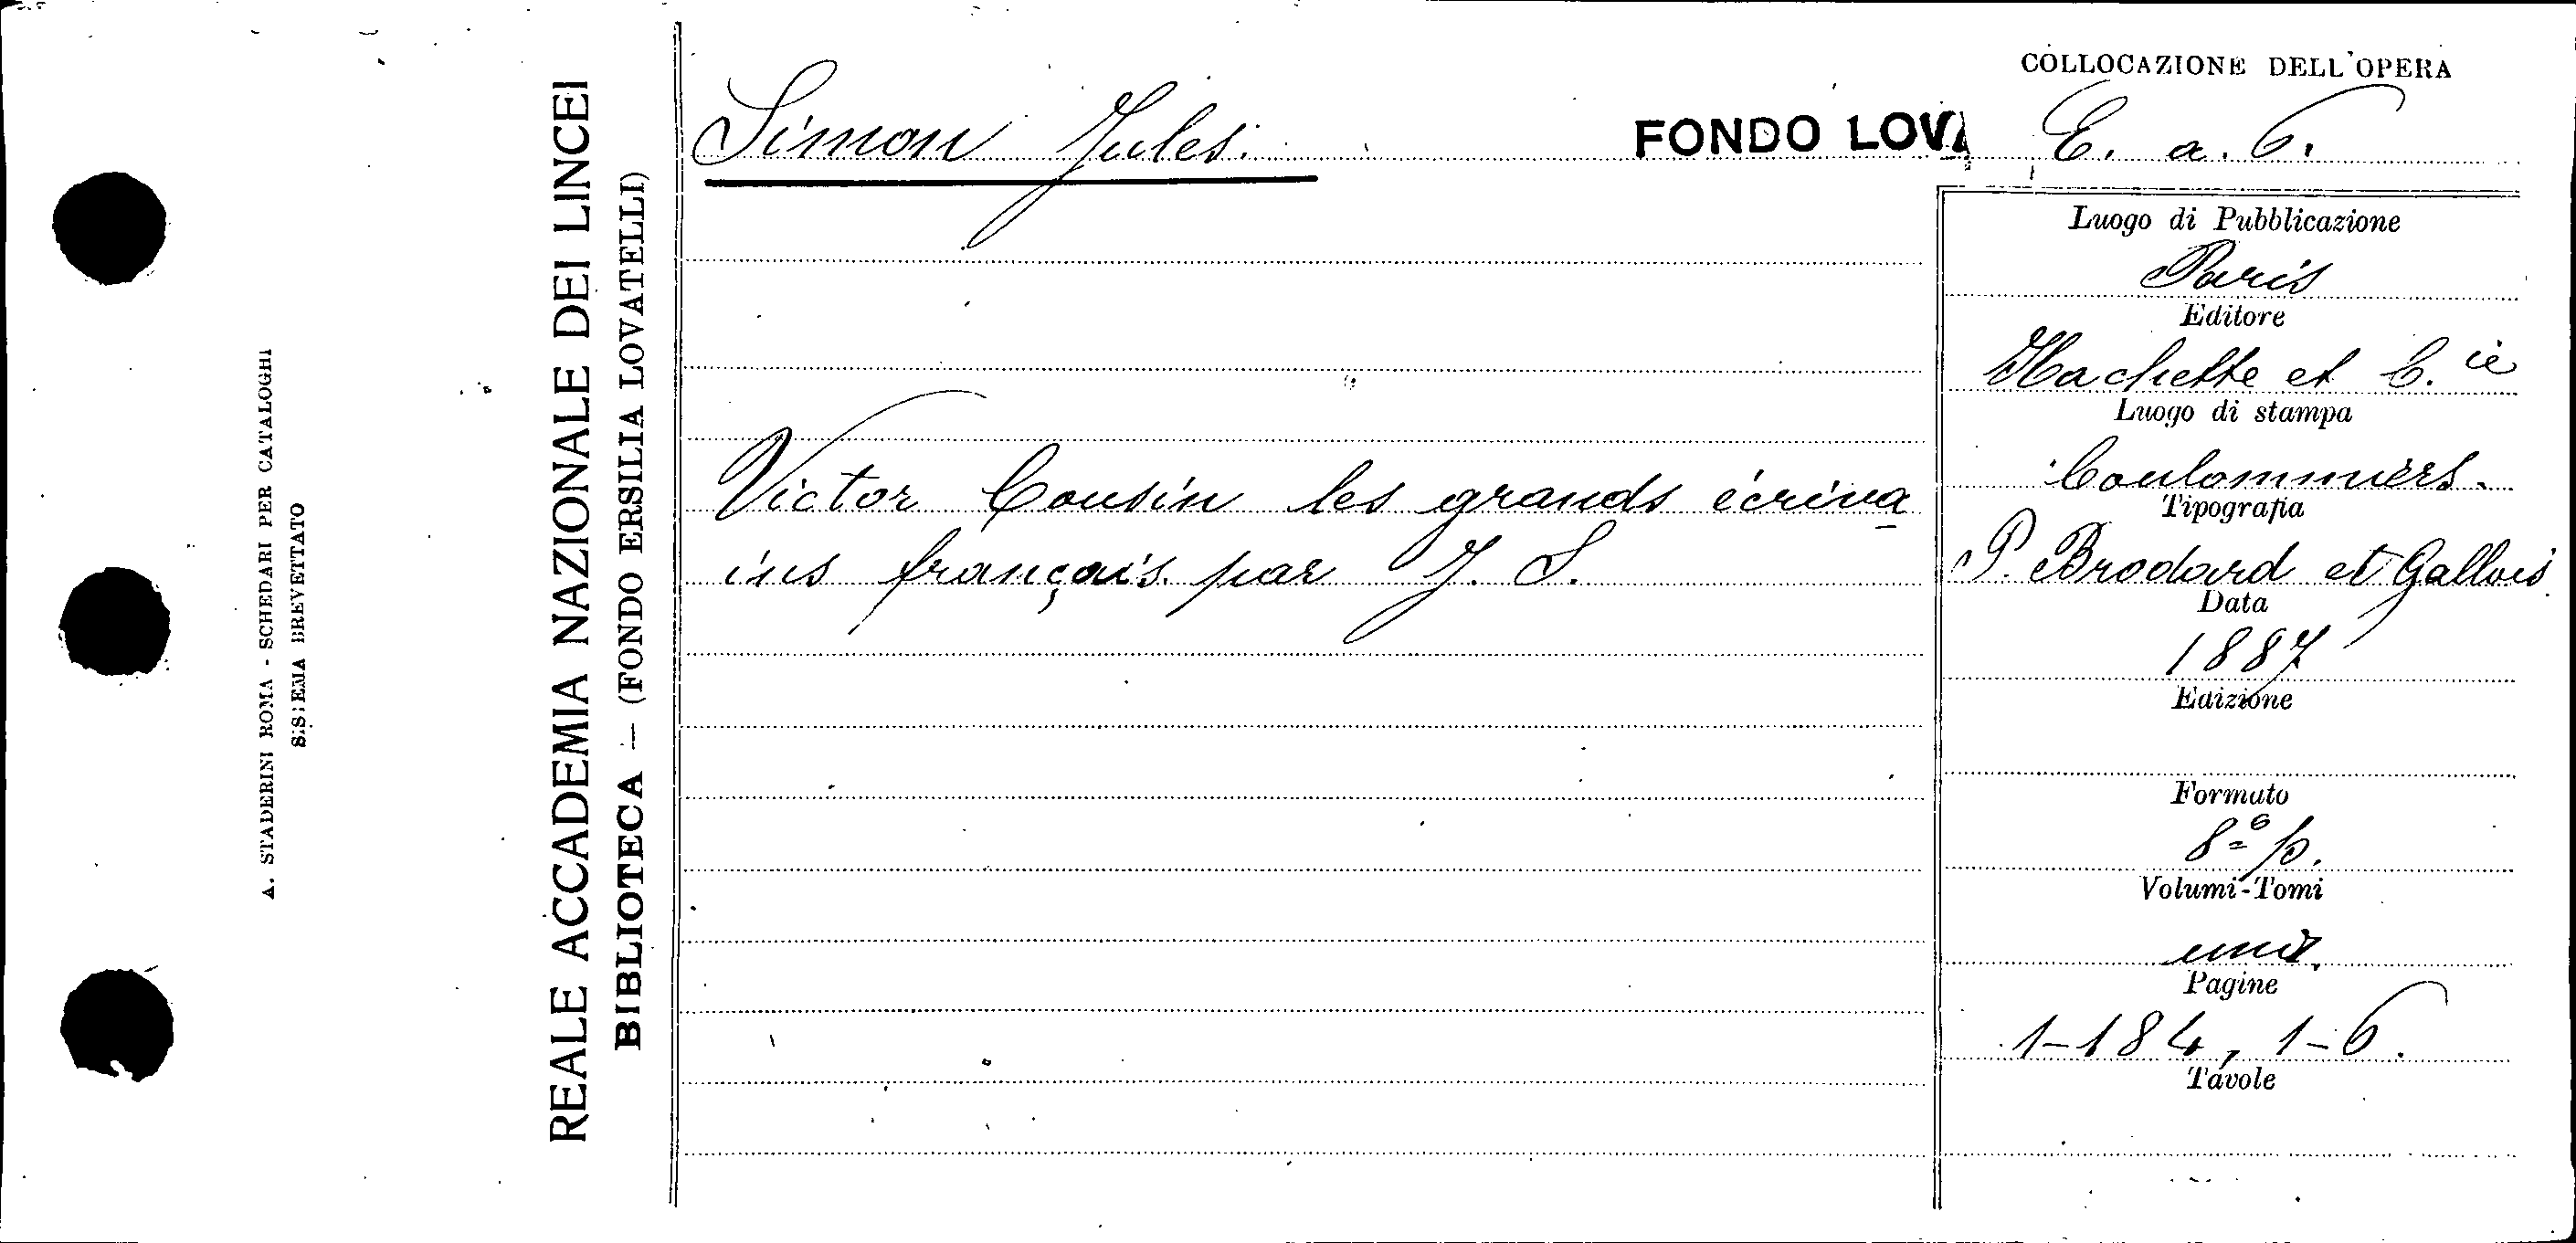 A. STADERINI ROMA - SCHEDARI PER CATALOGHI
SISTEMA BREVETTATO
REALE ACCADEMIA NAZIONALE DEI LINCEI
BIBLIOTECA — (FONDO ERSILIA LOVATELLI)
Simon Jules.
FONDO LOVA
Victor Cousin les grands écriva
ins français par J. S.
COLLOCAZIONE DELL'OPERA
E. a. 6.
Luogo di Pubblicazione
Paris
Editore
Hachette et C.ie
Luogo di stampa
Coulommiers.
Tipografia
P. Brodard et Gallois
Data
1887
Edizione
Formato
8º p.
Volumi-Tomi
Pagine
1-184, 1-6.
Tavole